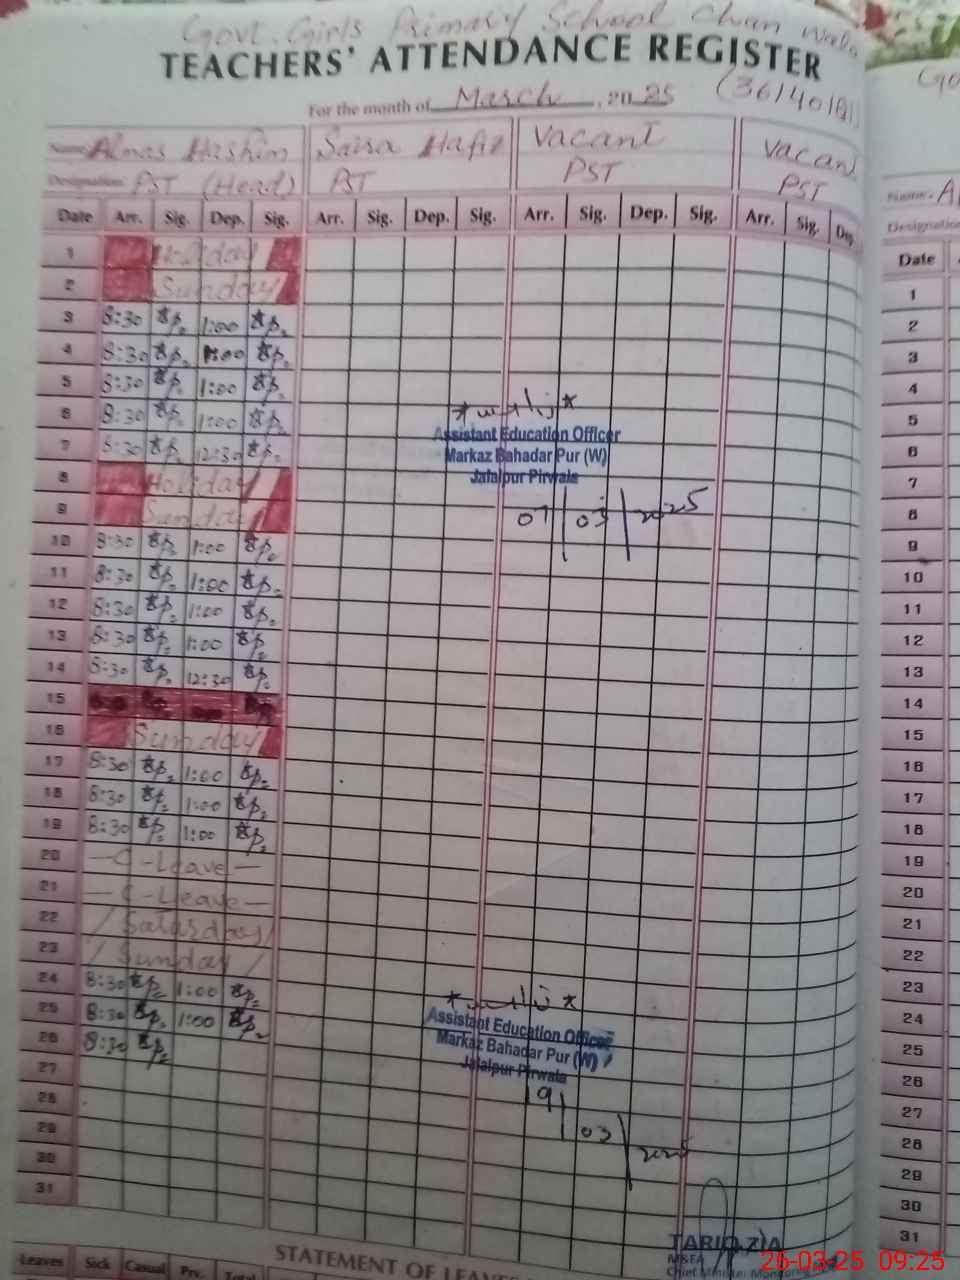 Govt. Girls Primary School Chan Wala
TEACHERS' ATTENDANCE REGISTER
For the month of March, 2025 (36140181)
Name Almas Hashim Saira Hafiz Vacant Vacant
Designation PST (Head) PST PST PST
Date Arr. Sig. Dep. Sig. Arr. Sig. Dep. Sig. Arr. Sig. Dep. Sig. Arr. Sig. Dep
1 Holiday
2 Sunday
3 8:30 1:00
4 8:30 1:00
5 8:30 1:00
6 8:30 1:00
7 8:30 12:30
8 Holiday
9 Sunday
10 8:30 1:00
11 8:30 1:00
12 8:30 1:00
13 8:30 1:00
14 8:30 12:30
15
16 Sunday
17 8:30 1:00
18 8:30 1:00
19 8:30 1:00
20 - C - Leave -
21 - C - Leave -
22 / Saturday /
23 / Sunday /
24 8:30 1:00
25 8:30 1:00
26 8:30
27
28
29
30
31
Assistant Education Officer
Markaz Bahadar Pur (W)
Jalalpur Pirwala
07/03/2025
Assistant Education Officer
Markaz Bahadar Pur (W)
Jalalpur Pirwala
19/03/2025
STATEMENT OF LEAVE
Leaves Sick Casual Prv. Total
TARIQ ZIA
MSEA
Chief Minister Monitoring
26-03-25 09:25
Go
Name. Al
Designation
Date
1
2
3
4
5
6
7
8
9
10
11
12
13
14
15
16
17
18
19
20
21
22
23
24
25
26
27
28
29
30
31